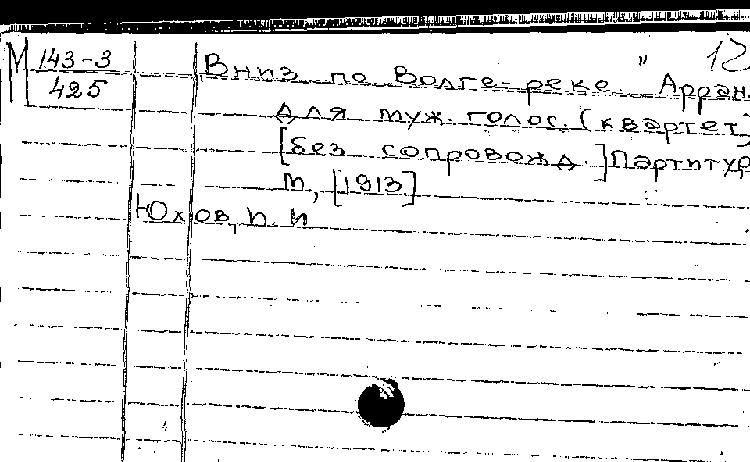 М 143-3 Вниз по Волге-реке" 12
425 Арран.
для муж. голос. (квартет)
[без сопровожд.] Партитур
М, [1913]
Юхов, И. И